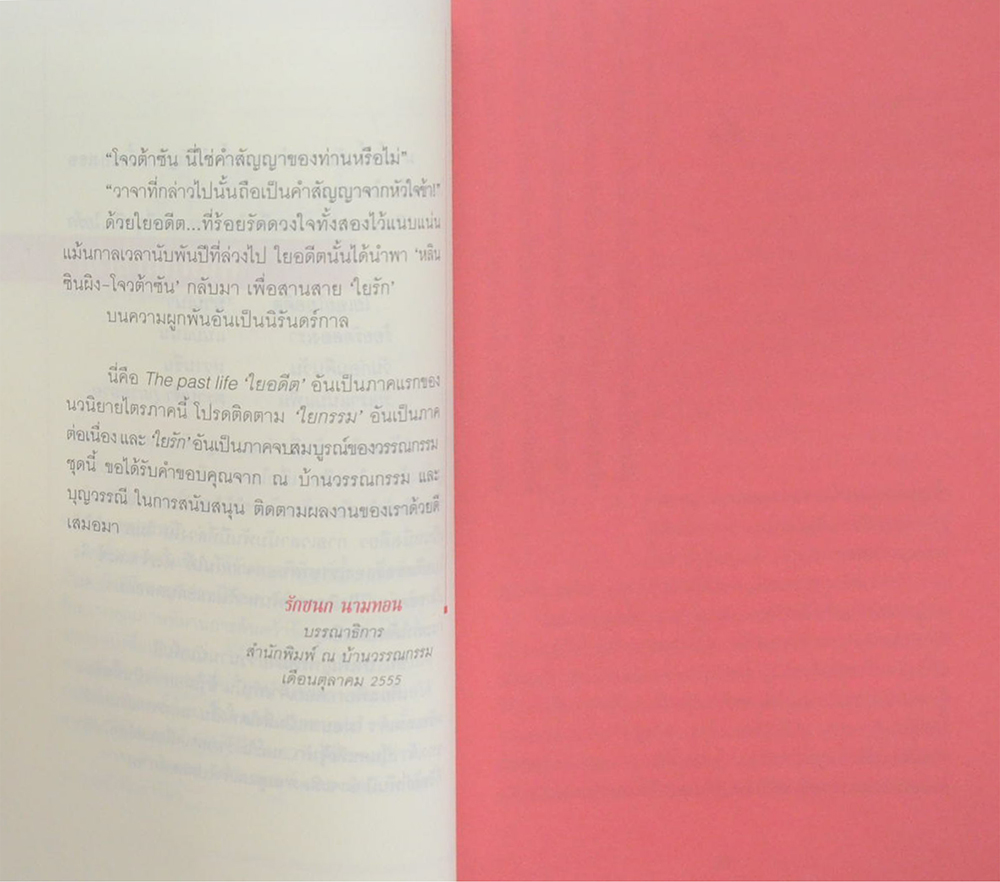 “โจวต้าซัน นี่ใช่คำสัญญาของท่านหรือไม่”
“วาจาที่กล่าวไปนั้นถือเป็นคำสัญญาจากหัวใจข้า!”
ด้วยใยอดีต...ที่ร้อยรัดดวงใจทั้งสองไว้แนบแน่น
แม้นกาลเวลานับพันปีที่ล่วงไป ใยอดีตนั้นได้นำพา ‘หลิน
ซินผิง-โจวต้าซัน’ กลับมา เพื่อสานสาย ‘ใยรัก’
บนความผูกพันอันเป็นนิรันดร์กาล
นี่คือ The past life ‘ใยอดีต’ อันเป็นภาคแรกของ
นวนิยายไตรภาคนี้ โปรดติดตาม ‘ใยกรรม’ อันเป็นภาค
ต่อเนื่อง และ ‘ใยรัก’ อันเป็นภาคจบสมบูรณ์ของวรรณกรรม
ชุดนี้ ขอได้รับคำขอบคุณจาก ณ บ้านวรรณกรรม และ
บุญวรรณี ในการสนับสนุน ติดตามผลงานของเราด้วยดี
เสมอมา
รักชนก นามทอน
บรรณาธิการ
สำนักพิมพ์ ณ บ้านวรรณกรรม
เดือนตุลาคม 2555